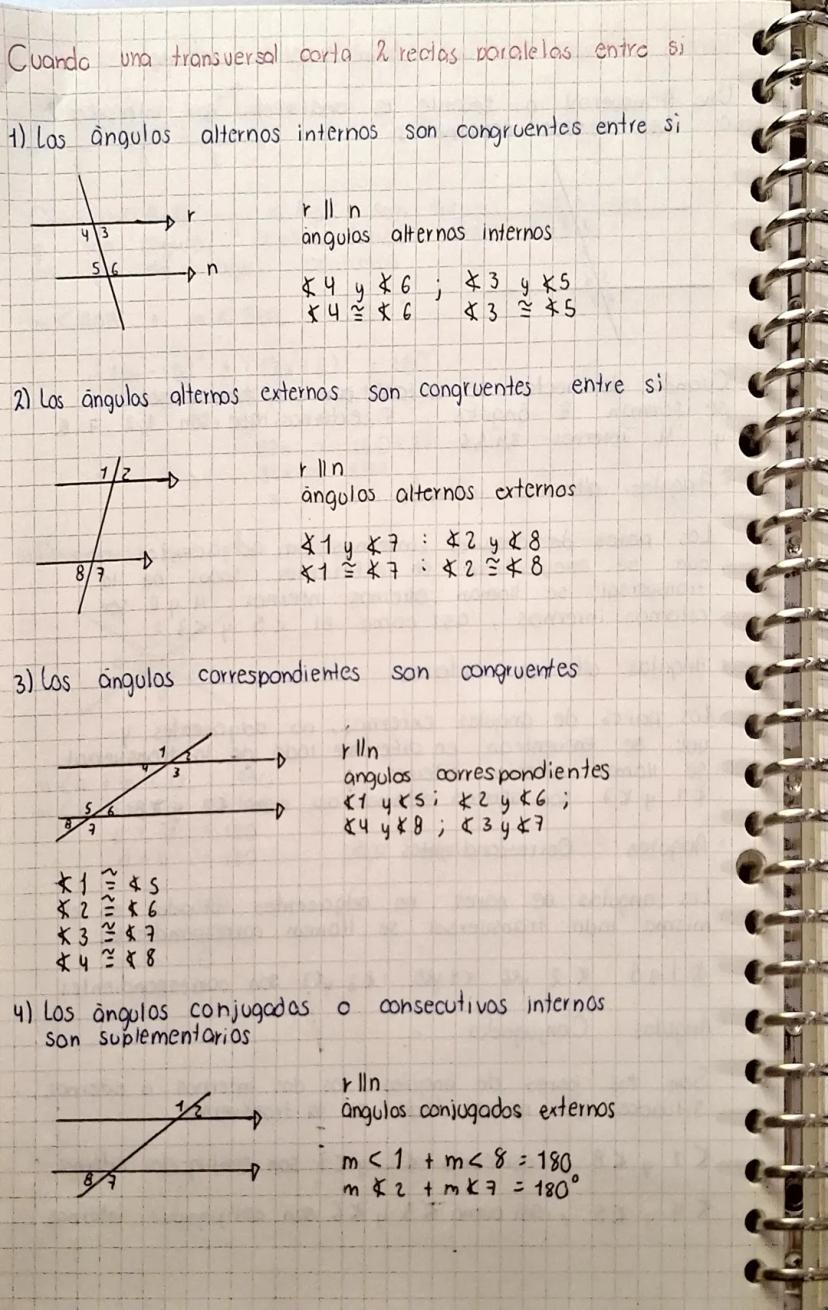 Cuando una transversal corta 2 rectas paralelas entre si
1) Los ángulos alternos internos son congruentes entre si
r
4 3
5 6
n
r || n
ángulos alternos internos
∢4 y ∢6 ; ∢3 y ∢5
∢4 ≅ ∢6 ∢3 ≅ ∢5
2) Los ángulos alternos externos son congruentes entre si
1 2
8 7
r || n
ángulos alternos externos
∢1 y ∢7 : ∢2 y ∢8
∢1 ≅ ∢7 : ∢2 ≅ ∢8
3) Los ángulos correspondientes son congruentes
1 2
4 3
5 6
8 7
r || n
angulos correspondientes
∢1 y ∢5 ; ∢2 y ∢6 ;
∢4 y ∢8 ; ∢3 y ∢7
∢1 ≅ ∢5
∢2 ≅ ∢6
∢3 ≅ ∢7
∢4 ≅ ∢8
4) Los ángulos conjugados o consecutivos internos
son suplementarios
1 2
8 7
r || n
ángulos conjugados externos
m < 1 + m < 8 = 180
m ∢ 2 + m ∢ 7 = 180°